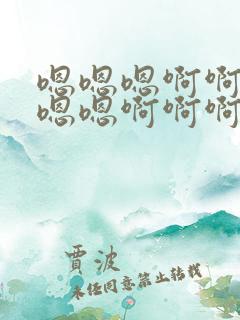 嗯嗯嗯啊啊
嗯嗯啊啊啊
贾波
未经同意禁止转载